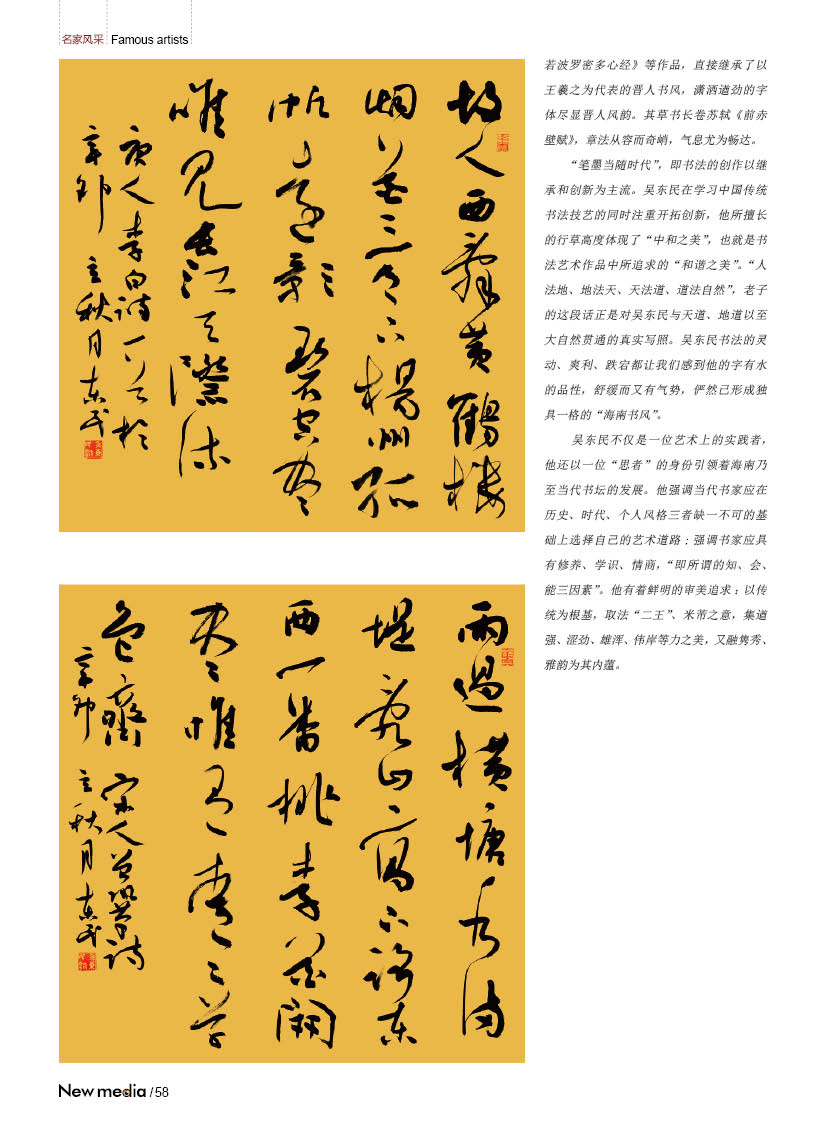 名家风采 Famous artists
故人西辞黄鶴楼
烟花三月下楊州孤
帆遠影碧空尽
唯见長江天際流
唐人李白诗一首於
辛卯 立秋月东民
雨過横塘水满
堤乱山高下路东
西一番桃李花開
尽惟有青青草
色齊 宋人曾鞏诗
辛卯 立秋月东民
若波罗密多心经》等作品，直接继承了以
王羲之为代表的晋人书风，潇洒遒劲的字
体尽显晋人风韵。其草书长卷苏轼《前赤
壁赋》，章法从容而奇峭，气息尤为畅达。
“笔墨当随时代”，即书法的创作以继
承和创新为主流。吴东民在学习中国传统
书法技艺的同时注重开拓创新，他所擅长
的行草高度体现了“中和之美”，也就是书
法艺术作品中所追求的“和谐之美”。“人
法地、地法天、天法道、道法自然”，老子
的这段话正是对吴东民与天道、地道以至
大自然贯通的真实写照。吴东民书法的灵
动、爽利、跌宕都让我们感到他的字有水
的品性，舒缓而又有气势，俨然已形成独
具一格的“海南书风”。
吴东民不仅是一位艺术上的实践者，
他还以一位“思者”的身份引领着海南乃
至当代书坛的发展。他强调当代书家应在
历史、时代、个人风格三者缺一不可的基
础上选择自己的艺术道路；强调书家应具
有修养、学识、情商，“即所谓的知、会、
能三因素”。他有着鲜明的审美追求：以传
统为根基，取法“二王”、米芾之意，集遒
强、涩劲、雄浑、伟岸等力之美，又融隽秀、
雅韵为其内蕴。
New media /58